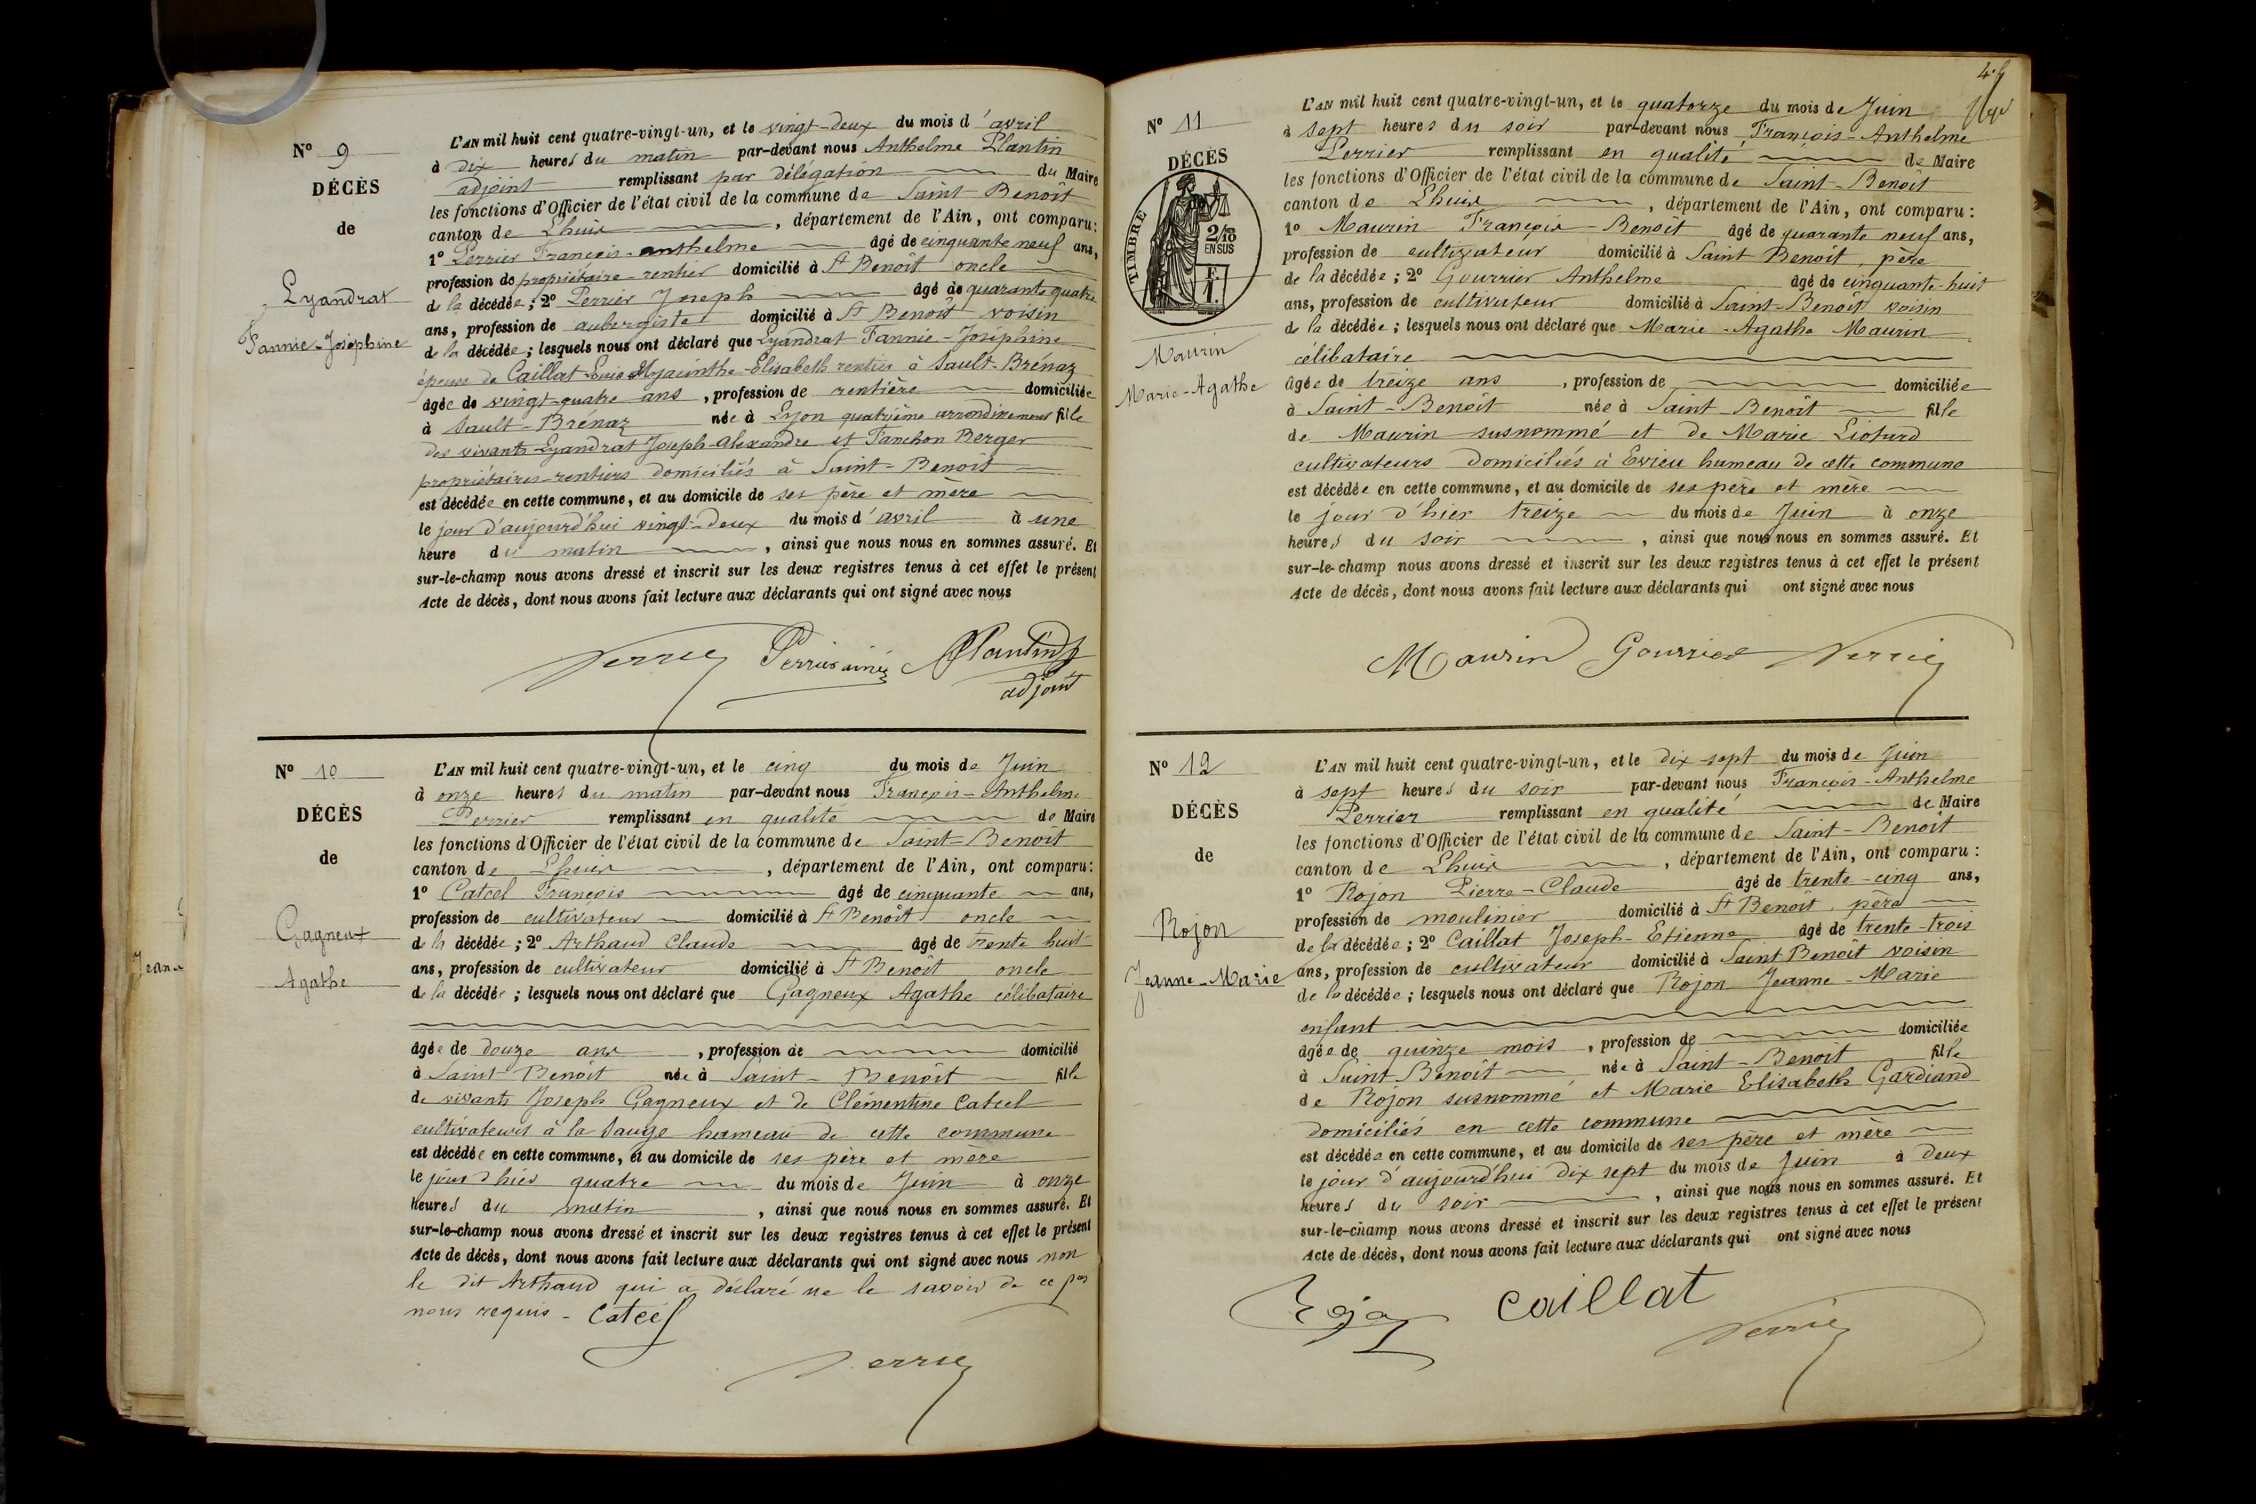 N° 9
DÉCÈS
de
Lyandrat
Fannie-Joséphine
L'AN mil huit cent quatre-vingt-un, et le vingt-deux du mois d'avril
à dix heures du matin par-devant nous Anthelme Plantin
adjoint remplissant par délégation du Maire
les fonctions d'Officier de l'état civil de la commune de Saint-Benoît
canton de Lhuis, département de l'Ain, ont comparu:
1° Perrier François-anthelme âgé de cinquante neuf ans,
profession de propriétaire-rentier domicilié à St Benoît oncle
de la décédée; 2° Perrier Joseph âgé de quarante quatre
ans, profession de aubergiste domicilié à St Benoît voisin
de la décédée; lesquels nous ont déclaré que Lyandrat Fannie-Joséphine
épouse de Caillat Louis Hyacinthe-Elisabeth rentier à Sault-Brénaz
âgée de vingt-quatre ans, profession de rentière domiciliée
à Sault-Brénaz née à Lyon quatrième arrondissement fille
des vivants Lyandrat Joseph-alexandre et Fanchon Berger
propriétaires-rentiers domiciliés à Saint-Benoît
est décédée en cette commune, et au domicile de ses père et mère
le jour d'aujourd'hui vingt-deux du mois d'avril à une
heure du matin, ainsi que nous nous en sommes assuré. Et
sur-le-champ nous avons dressé et inscrit sur les deux registres tenus à cet effet le présent
Acte de décès, dont nous avons fait lecture aux déclarants qui ont signé avec nous
Perrier Perrier ainé Plantin
adjoint
N° 10
DÉCÈS
de
Gagneux
Agathe
L'AN mil huit cent quatre-vingt-un, et le cinq du mois de Juin
à onze heures du matin par-devant nous François-Anthelme
Perrier remplissant en qualité de Maire
les fonctions d'Officier de l'état civil de la commune de Saint-Benoît
canton de Lhuis, département de l'Ain, ont comparu:
1° Catcel François âgé de cinquante ans,
profession de cultivateur domicilié à St Benoît oncle
de la décédée; 2° Arthaud Claude âgé de trente huit
ans, profession de cultivateur domicilié à St Benoît oncle
de la décédée; lesquels nous ont déclaré que Gagneux Agathe célibataire
âgée de douze ans, profession de domicilié
à Saint-Benoît née à Saint-Benoît fille
de vivants Joseph Gagneux et de Clémentine Catcel
cultivateurs à la Sauge hameau de cette commune
est décédée en cette commune, et au domicile de ses père et mère
le jour d'hier quatre du mois de Juin à onze
heures du matin, ainsi que nous nous en sommes assuré. Et
sur-le-champ nous avons dressé et inscrit sur les deux registres tenus à cet effet le présent
Acte de décès, dont nous avons fait lecture aux déclarants qui ont signé avec nous non
le dit Arthaud qui a déclaré ne le savoir de ce par
nous requis - Catcel
Perrier
Jeanne
N° 11
DÉCÈS
TIMBRE
2/10
EN SUS
Maurin
Marie-Agathe
L'AN mil huit cent quatre-vingt-un, et le quatorze du mois de Juin
à sept heures du soir par-devant nous François-Anthelme
Perrier remplissant en qualité de Maire
les fonctions d'Officier de l'état civil de la commune de Saint-Benoît
canton de Lhuis, département de l'Ain, ont comparu:
1° Maurin François-Benoît âgé de quarante neuf ans,
profession de cultivateur domicilié à Saint Benoît, père
de la décédée; 2° Gourrier Anthelme âgé de cinquante-huit
ans, profession de cultivateur domicilié à Saint-Benoît voisin
de la décédée; lesquels nous ont déclaré que Marie-Agathe Maurin
célibataire
âgée de treize ans, profession de domiciliée
à Saint-Benoît née à Saint-Benoît fille
de Maurin susnommé et de Marie Liotard
cultivateurs domiciliés à Evieu hameau de cette commune
est décédée en cette commune, et au domicile de ses père et mère
le jour d'hier treize du mois de Juin à onze
heures du soir, ainsi que nous nous en sommes assuré. Et
sur-le-champ nous avons dressé et inscrit sur les deux registres tenus à cet effet le présent
Acte de décès, dont nous avons fait lecture aux déclarants qui ont signé avec nous
Maurin Gourrier Perrier
N° 12
DÉCÈS
de
Rojon
Jeanne-Marie
L'AN mil huit cent quatre-vingt-un, et le dix-sept du mois de Juin
à sept heures du soir par-devant nous François-Anthelme
Perrier remplissant en qualité de Maire
les fonctions d'Officier de l'état civil de la commune de Saint-Benoît
canton de Lhuis, département de l'Ain, ont comparu:
1° Rojon Pierre-Claude âgé de trente-cinq ans,
profession de moulinier domicilié à St Benoît, père
de la décédée; 2° Caillat Joseph-Etienne âgé de trente-trois
ans, profession de cultivateur domicilié à Saint Benoît voisin
de la décédée; lesquels nous ont déclaré que Rojon Jeanne-Marie
enfant
âgée de quinze mois, profession de domiciliée
à Saint-Benoît née à Saint-Benoît fille
de Rojon susnommé et Marie Elisabeth Gardiand
domiciliés en cette commune
est décédée en cette commune, et au domicile de ses père et mère
le jour d'aujourd'hui dix sept du mois de Juin à deux
heures du soir, ainsi que nous nous en sommes assuré. Et
sur-le-champ nous avons dressé et inscrit sur les deux registres tenus à cet effet le présent
Acte de décès, dont nous avons fait lecture aux déclarants qui ont signé avec nous
Rojon caillat Perrier